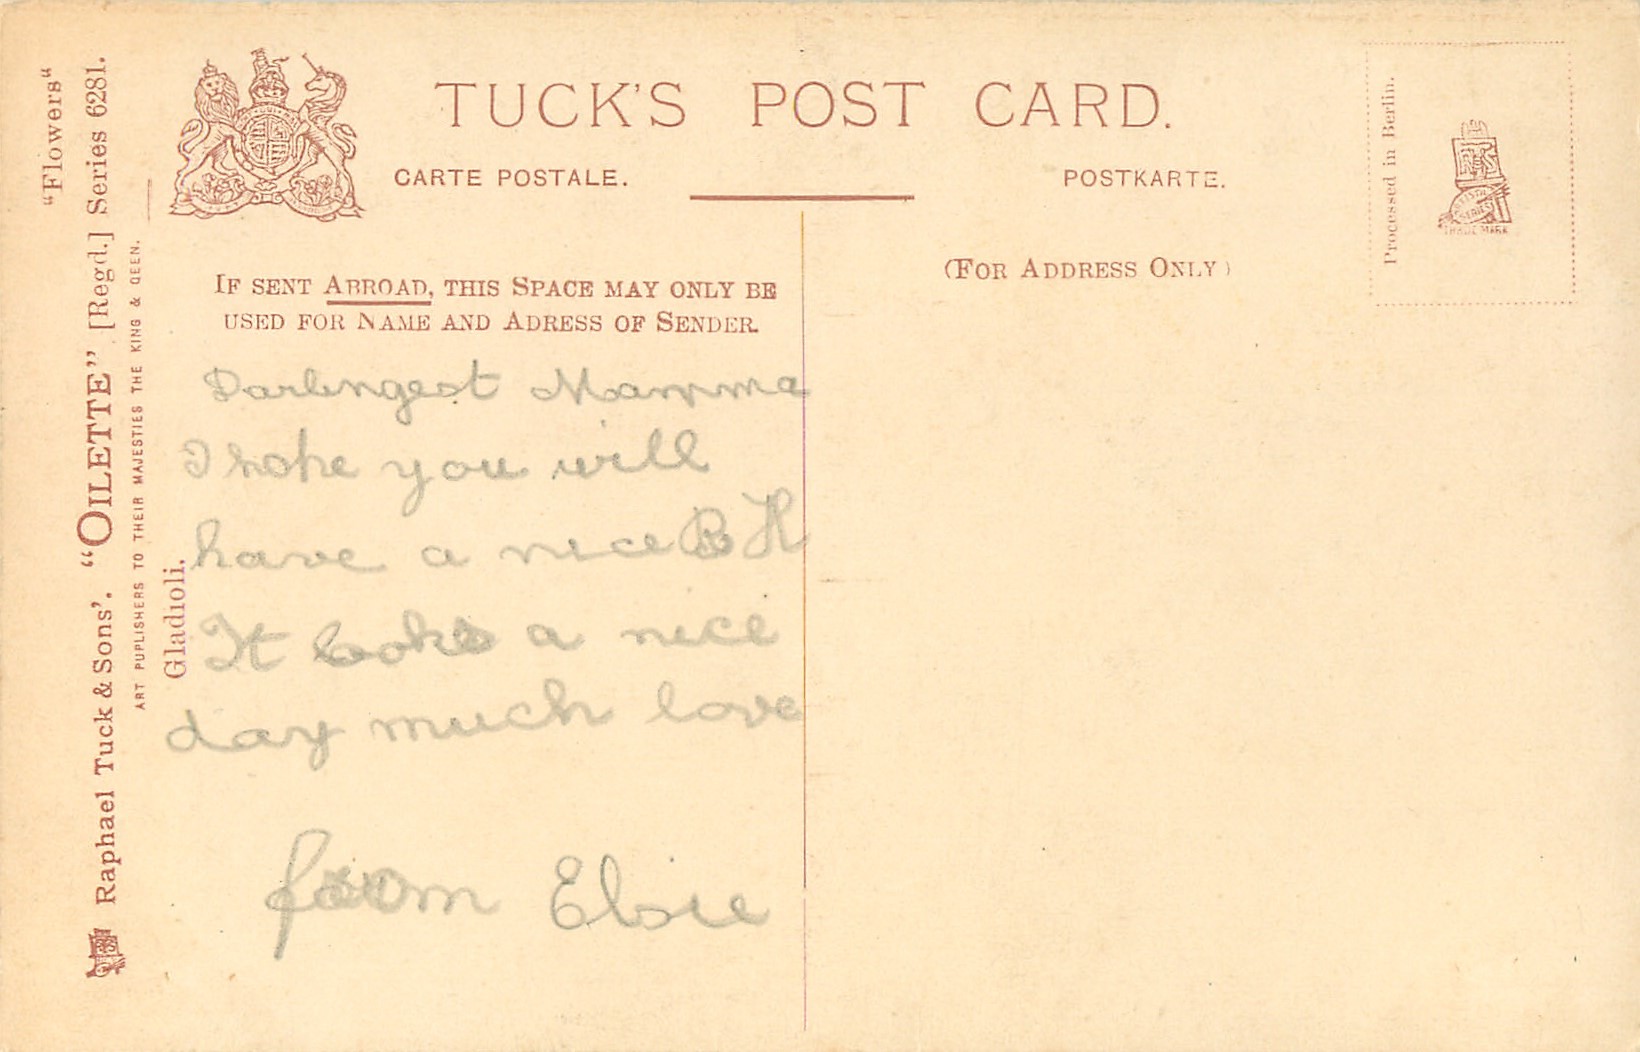 TUCK'S POST CARD.
CARTE POSTALE.
POSTKARTE.
IF SENT ABROAD, THIS SPACE MAY ONLY BE
USED FOR NAME AND ADRESS OF SENDER.
(FOR ADDRESS ONLY)
Processed in Berlin.
TRADE MARK
"Flowers"
Raphael Tuck & Sons'. "OILETTE" [Regd.] Series 6281.
ART PUPLISHERS TO THEIR MAJESTIES THE KING & QEEN.
Gladioli.
Darlingest Mamma
I hope you will
have a nice B H
It looks a nice
day much love
from Elsie